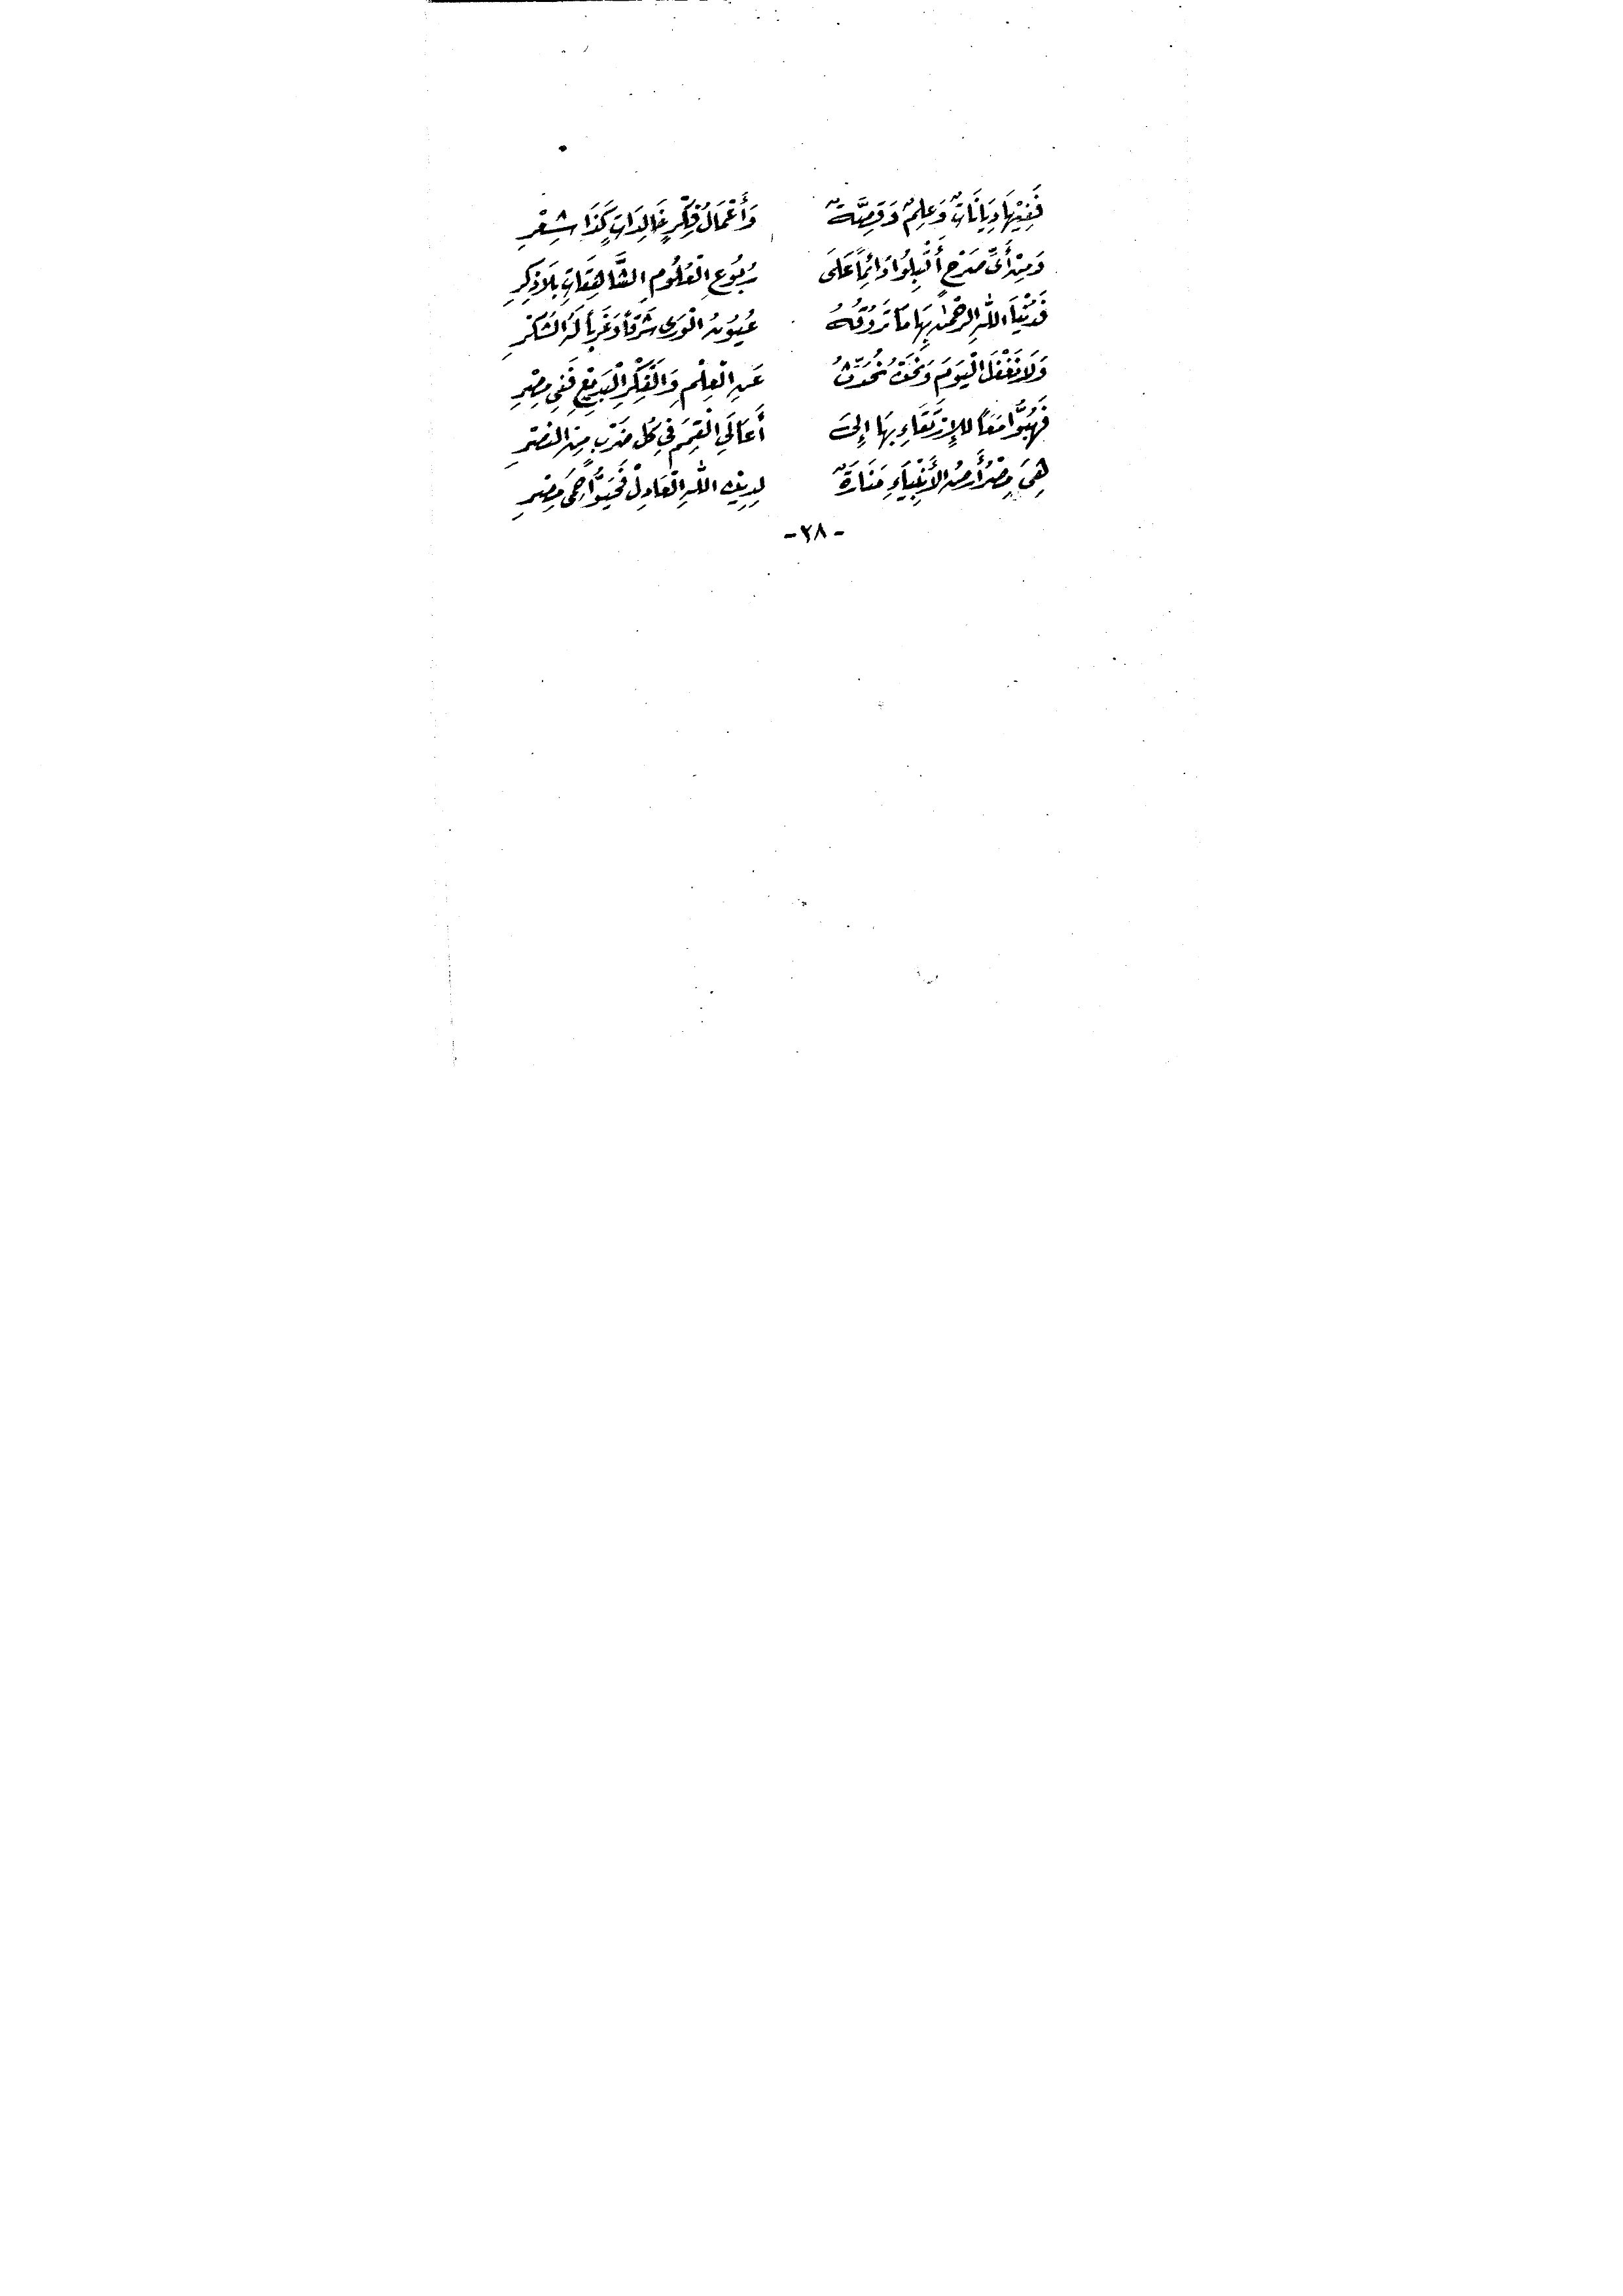 فَفِيْهَا دِيَانَاتٌ وَعِلْمٌ وَقِصَّةٌ وَأَعْمَالُ فِكْرٍ خَالِدَاتٍ كَذَا شِعْرِ
وَمِنْ أَىِّ صَرْحٍ أَقْبِلُوا دَائِمًا عَلَى رُبُوعِ الْعُلُومِ الشَّاهِقَاتِ بِلَا ذِكِرِ
فَدُنْيَا اللهِ الرَّحْمٰنِ بِهَا مَا تَرُوْقُهُ عُيُوْنُ الْوَرَى شَرْقاً وَغَرْباً لَهُ الشُكْرِ
وَلَا نَغْفَلَ الْيَوَمَ وَنَحْنُ نُحَدِّثُ عَنِ الْعِلْمِ وَالْفِكْرِ الْبَدِيْعِ فَفِى مِصْرِ
فَهُبُّوا مَعَاً لِلإِرْتِقَاءِ بِهَا إِلَى أَعَالَي الْقِمَمِ فِي كُلِ ضَرْبٍ مِنَ النَصْرِ
هِىَ مِصْرُ أَرْضُ الأَنْبِيَاءِ مَنَارَةٌ لِدِيْنِ اللهِ الْعَادِلْ فَحَيُّوا حِمَى مِصْرِ
-٢٨-